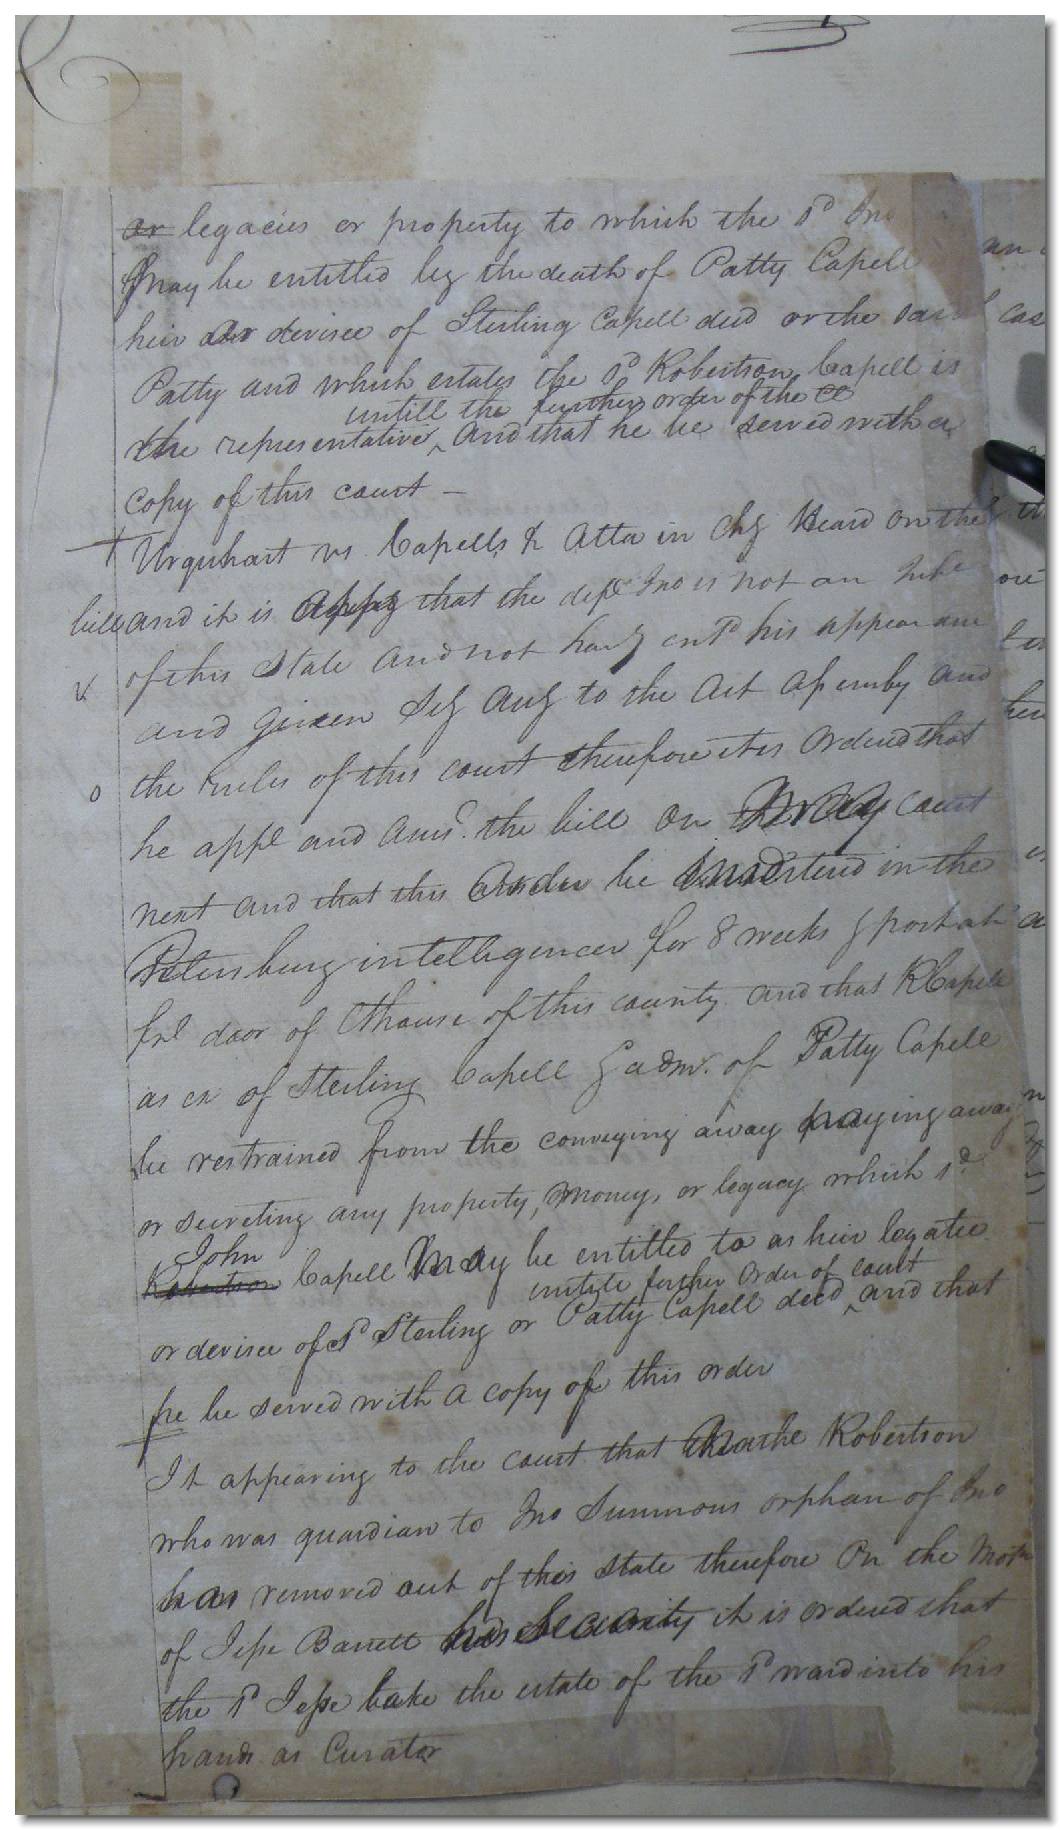 or legacies or property to which the sd Jno
may be entitled by the death of Patty Capell
heir or devisee of Sterling Capell decd or the said
Patty and which estates the sd Robertson Capell is
untill the further order of the
the representative ^ and that he be served with a
copy of this court —
Urquhart vs Capells & Atta in Chy Heard on the
bill and it is that the deft Jno is not an
of this State and not havg entd his appearance
and given Sey Aug to the Act assemby and
the rules of this court therefore it is Ordered that
he appl and ans. the bill on court
next and that this Order be in the
Petersburg intelligencer for 8 weeks & post at
frt door of Cthouse of this county and that R Capell
as ex of Sterling Capell & adm. of Patty Capell
be restrained from the conveying away paying away
or secreting any property, money, or legacy which sd.
John
Robertson Capell may be entitled to as heir legatee
untill further Order of court
or devisee of sd Sterling or Patty Capell decd ^ and that
he be served with a copy of this order
It appearing to the court that Robertson
who was guardian to Jno Simmons orphan of Jno
has removed out of this state therefore On the Motn
of Jesse Barrett his Security it is ordered that
the sd Jesse take the estate of the sd ward into his
hands as Curator